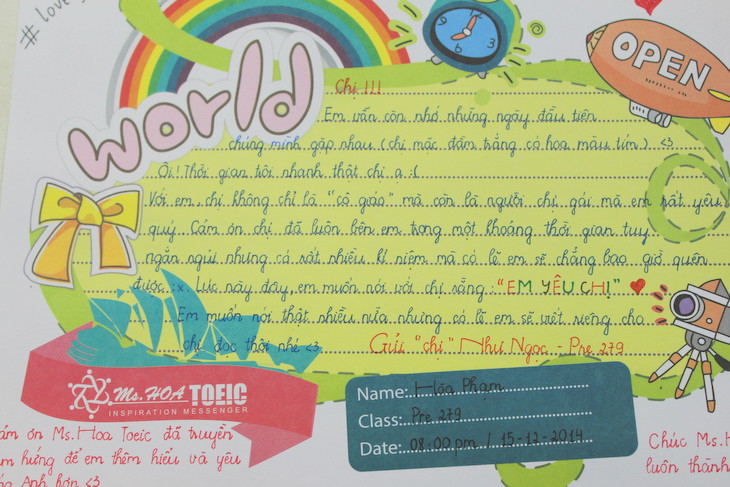 # love
world
OPEN
Chị !!!
Em vẫn còn nhớ những ngày đầu tiên
chúng mình gặp nhau (chị mặc đầm trắng có hoa màu tím) <3
Ôi! Thời gian trôi nhanh thật chị ạ :(
Với em chị không chỉ là "cô giáo" mà còn là người chị gái mà em rất yêu
quý. Cám ơn chị đã luôn bên em trong một khoảng thời gian tuy
ngắn ngủi nhưng có rất nhiều kỉ niệm mà có lẽ em sẽ chẳng bao giờ quên
được :x. Lúc này đây em muốn nói với chị rằng: "EM YÊU CHỊ"
Em muốn nói thật nhiều nữa nhưng có lẽ em sẽ viết riêng cho
chị đọc thôi nhé <3
Gửi "chị" Như Ngọc - Pre 279
Ms. HOA TOEIC
INSPIRATION MESSENGER
Name: Hóa Phạm
Class: Pre 279
Date: 08:00 pm / 15-12-2014
ơn Ms. Hoa Toeic đã truyền
hứng để em thêm hiểu và yêu
Anh hơn <3
Chúc Ms. H
luôn thành